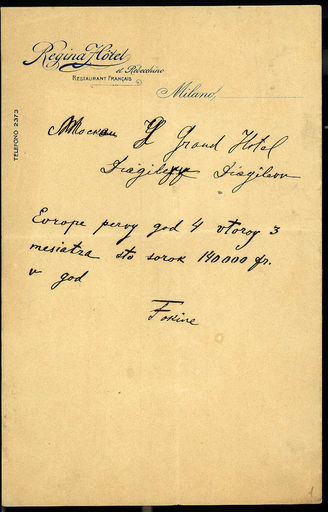 Regina Hôtel
et Rebecchino
RESTAURANT FRANÇAIS
Milano,
TELEFONO 2373
Grand Hotel
Diagileff Diagilew
Europe pervoy god 4 vtoroy 3
mesiatza sto sorok 140000 fr.
v god
Fokine